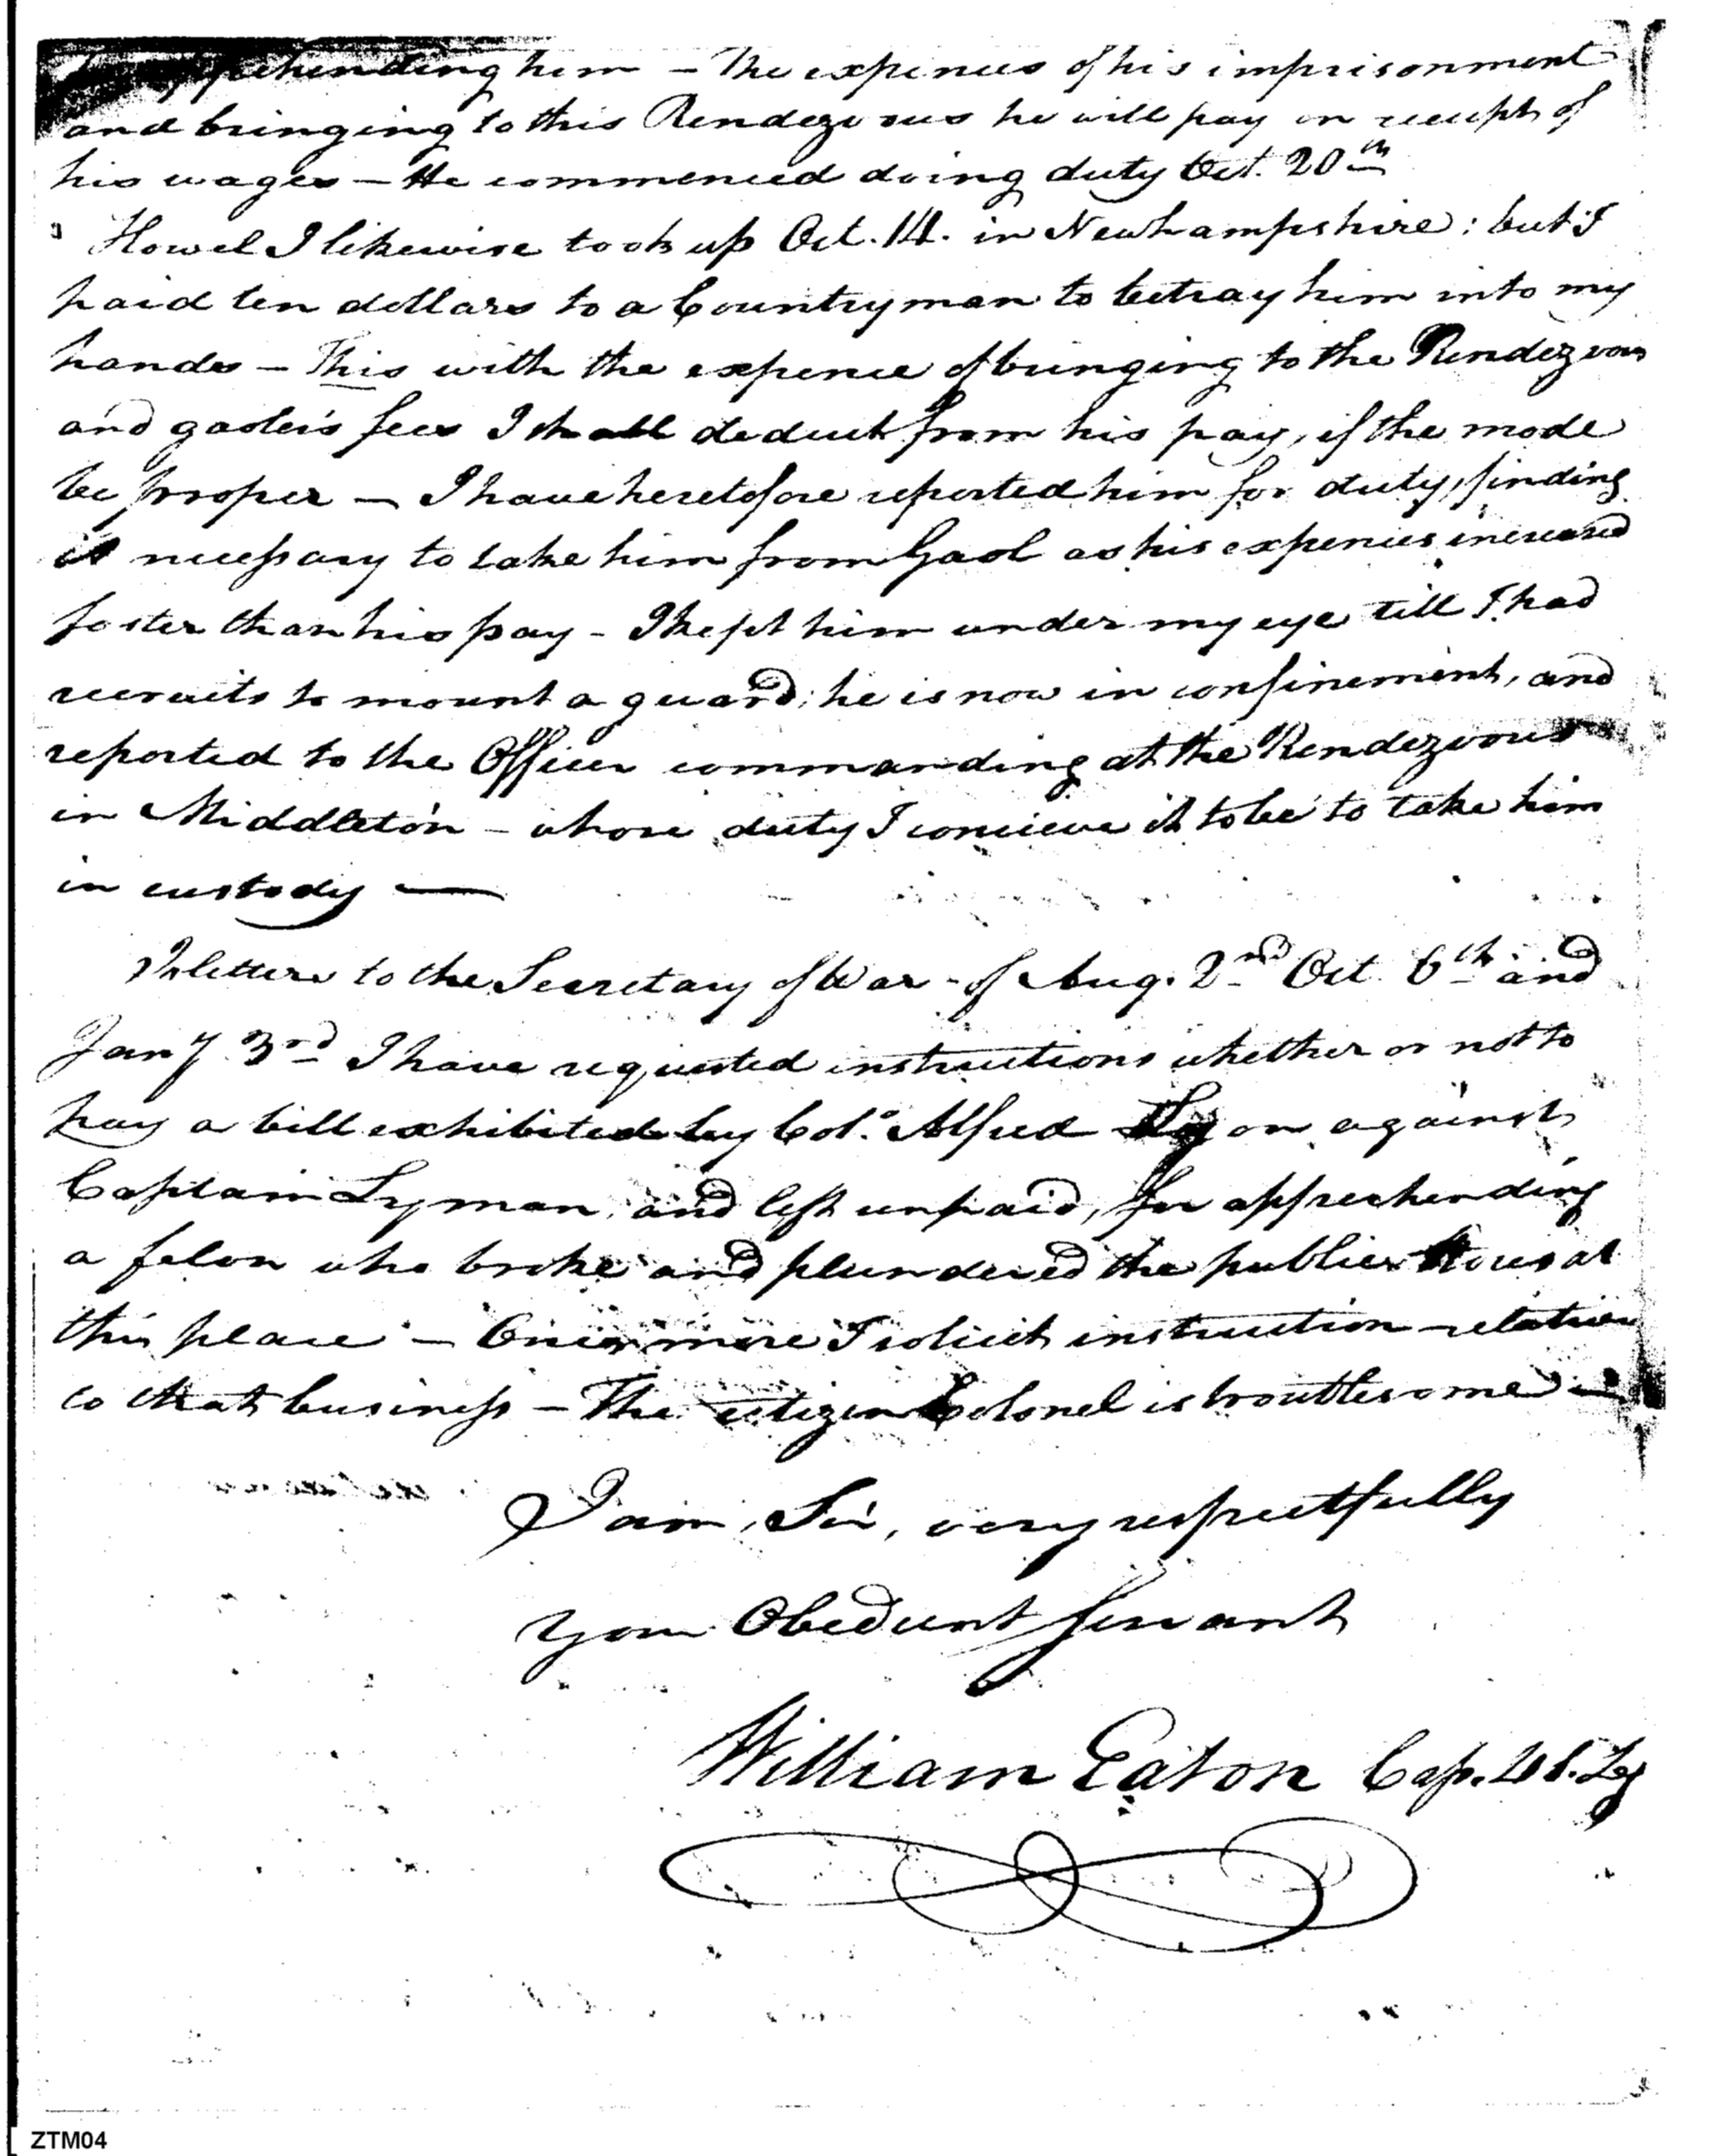 apprehending him – The expences of his imprisonment
and bringing to this Rendezvous he will pay on receipt of
his wages – He commenced doing duty Oct. 20th
Howel I likewise took up Oct. 14. in Newhampshire: but I
paid ten dollars to a Countryman to betray him into my
hands – This with the expence of bringing to the Rendezvous
and gaoler's fees I shall deduct from his pay, if the mode
be proper – I have heretofore reported him for duty, finding
it necessary to take him from Gaol as his expences increased
faster than his pay – I kept him under my eye till I had
recruits to mount a guard; he is now in confinement, and
reported to the Officer commanding at the Rendezvous
in Middleton – whose duty I concieve it to be to take him
in custody —
In letters to the Secretary of War – of Aug. 2nd Oct. 6th and
Jany. 3rd I have requested instructions whether or not to
pay a bill exhibited by Col.o Alfred on against
Captain Lyman, and left unpaid, for apprehending
a felon who broke and plundered the public Stores at
this place – Once more I solicit instruction relative
to that business – The citizen Colonel is troublesome –
I am, Sir, very respectfully
Your Obedient Servant
William Eaton Cap. US. Leg
ZTM04